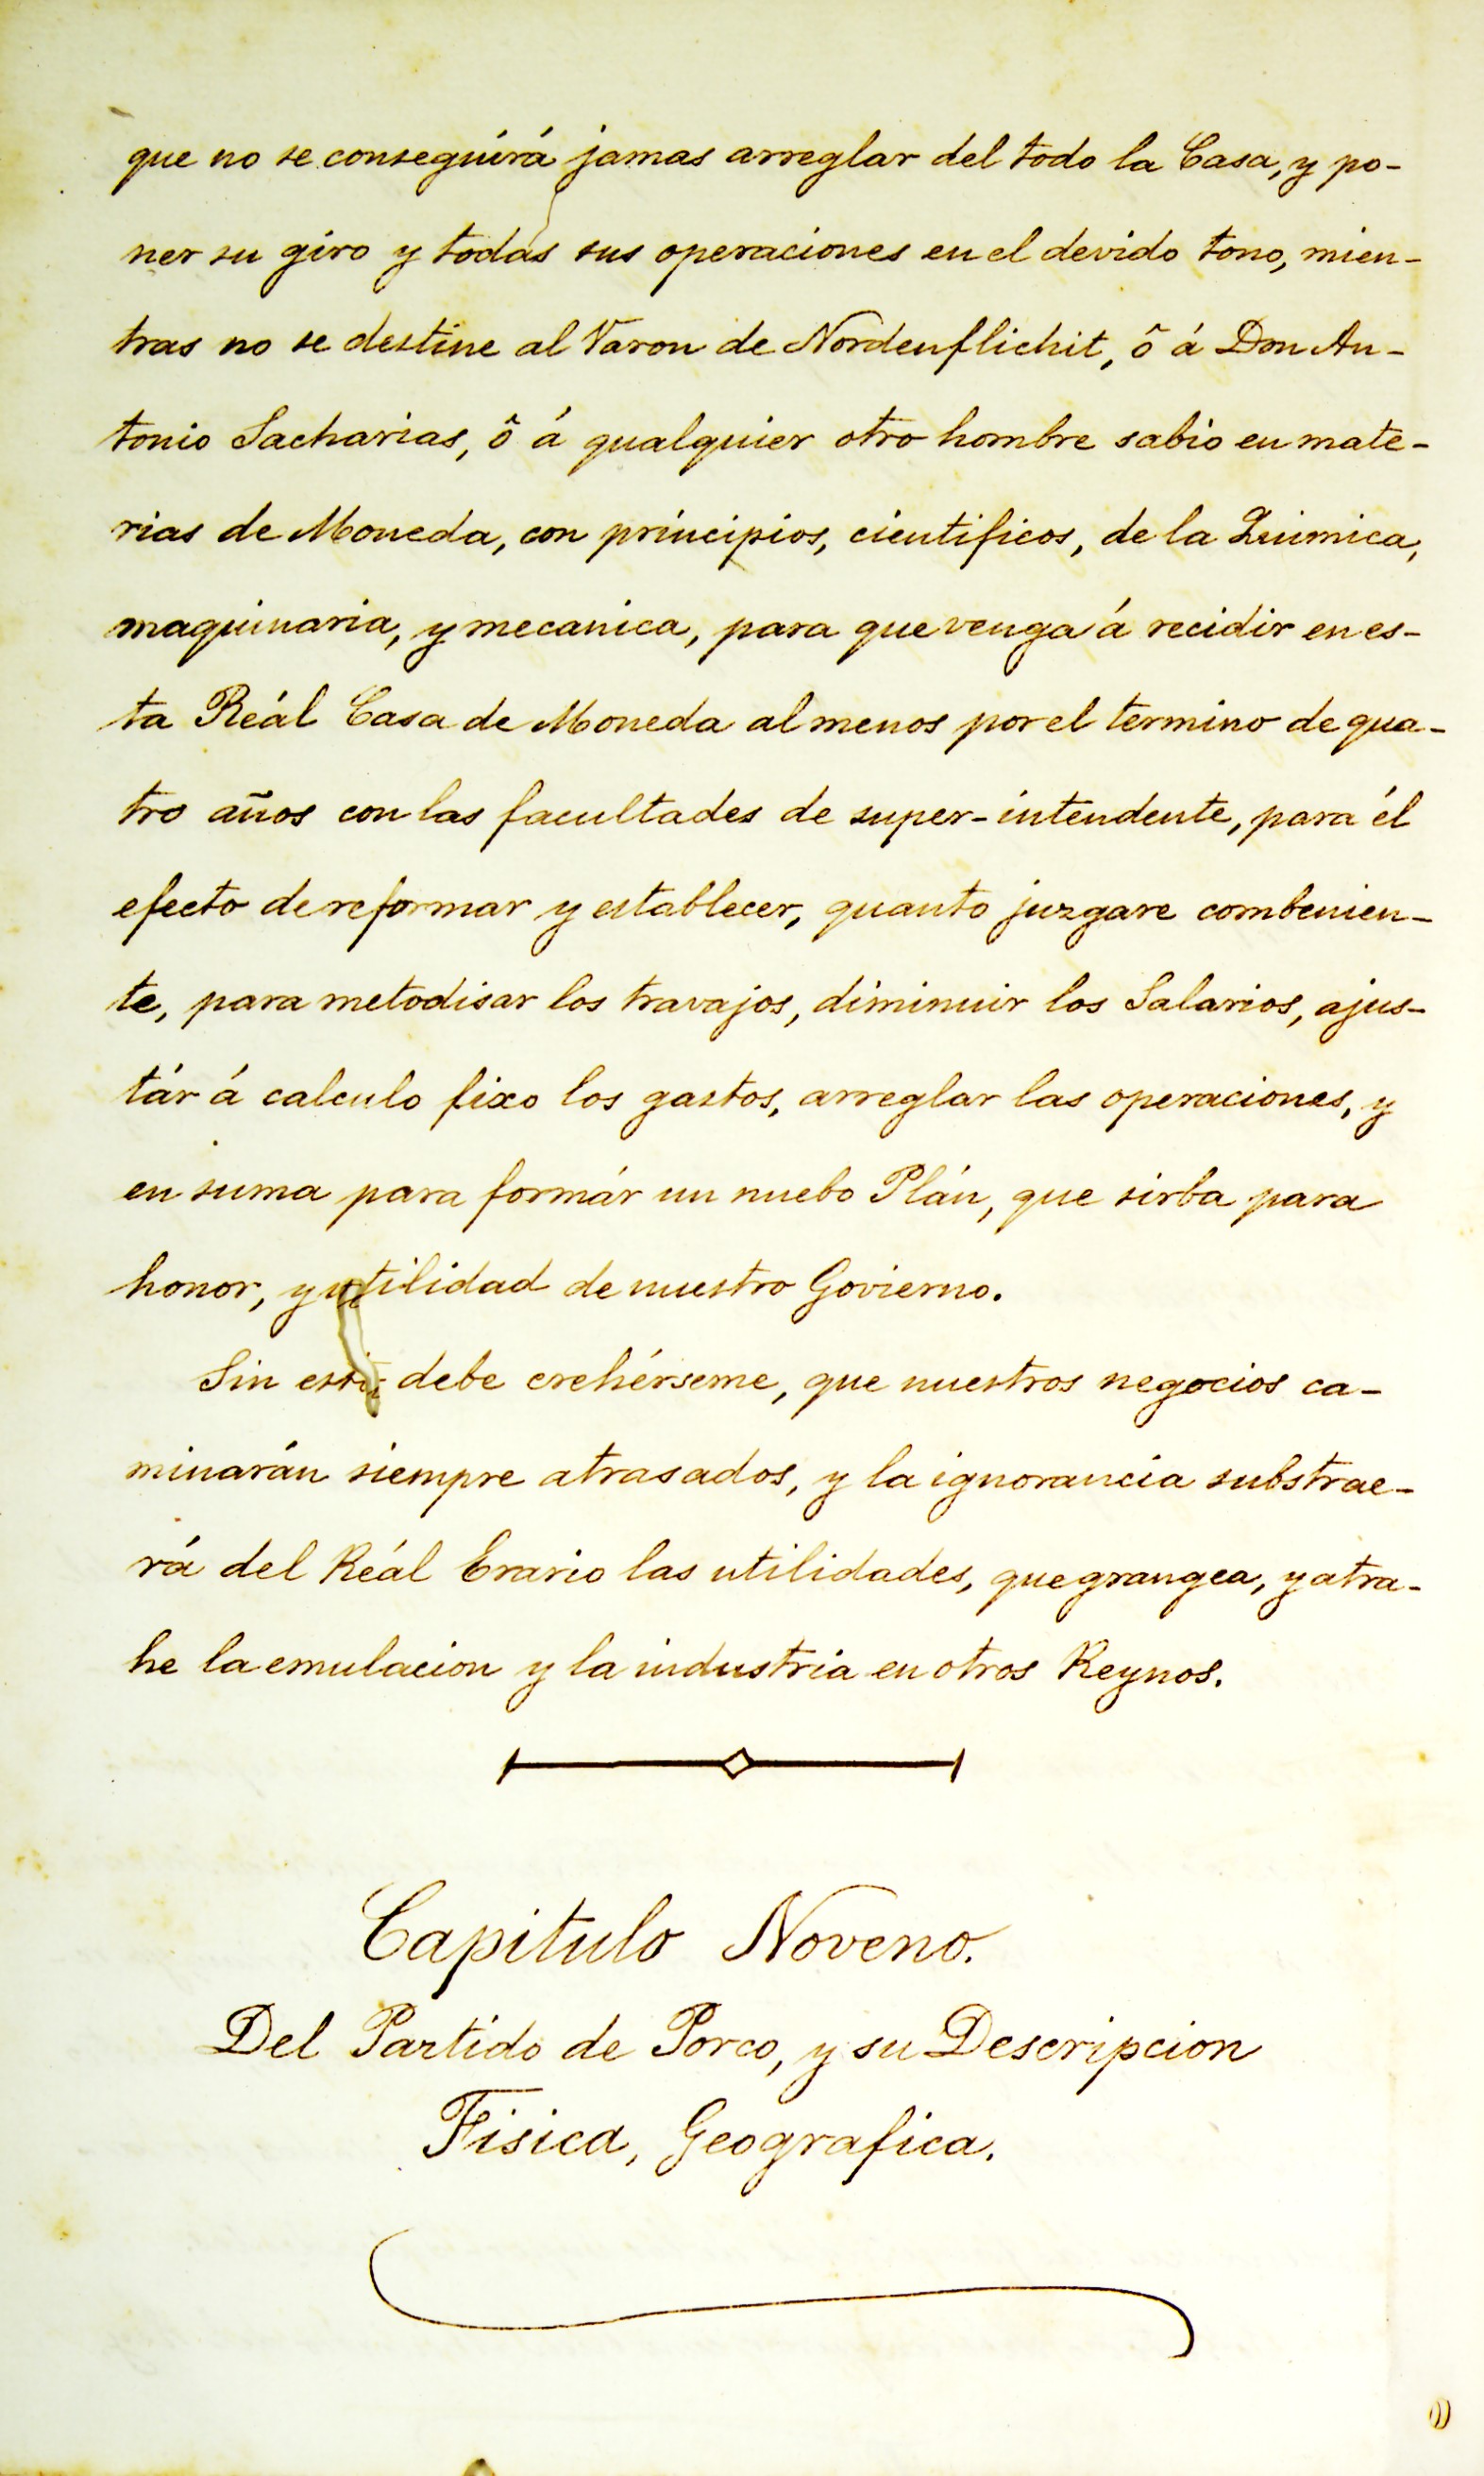 que no se conseguirá jamas arreglar del todo la Casa, y po-
ner su giro y todas sus operaciones en el devido tono, mien-
tras no se destine al Varon de Nordenflichit, ô á Don An-
tonio Sacharias, ô á qualquier otro hombre sabio en mate-
rias de Moneda, con principios, cientificos, de la Quimica,
maquinaria, y mecanica, para que venga á recidir en es-
ta Reál Casa de Moneda al menos por el termino de qua-
tro años con las facultades de super-intendente, para él
efecto de reformar y establecer, quanto juzgare combenien-
te, para metodisar los travajos, diminuir los Salarios, ajus-
tár á calculo fixo los gastos, arreglar las operaciones, y
en suma para formár un nuebo Plán, que sirba para
honor, y utilidad de nuestro Govierno.
Sin debe crehérseme, que nuestros negocios ca-
minarán siempre atrasados, y la ignorancia substrae-
rá del Reál Erario las utilidades, que grangea, y atra-
he la emulacion y la industria en otros Reynos.
Capitulo Noveno.
Del Partido de Porco, y su Descripcion
Fisica, Geografica.